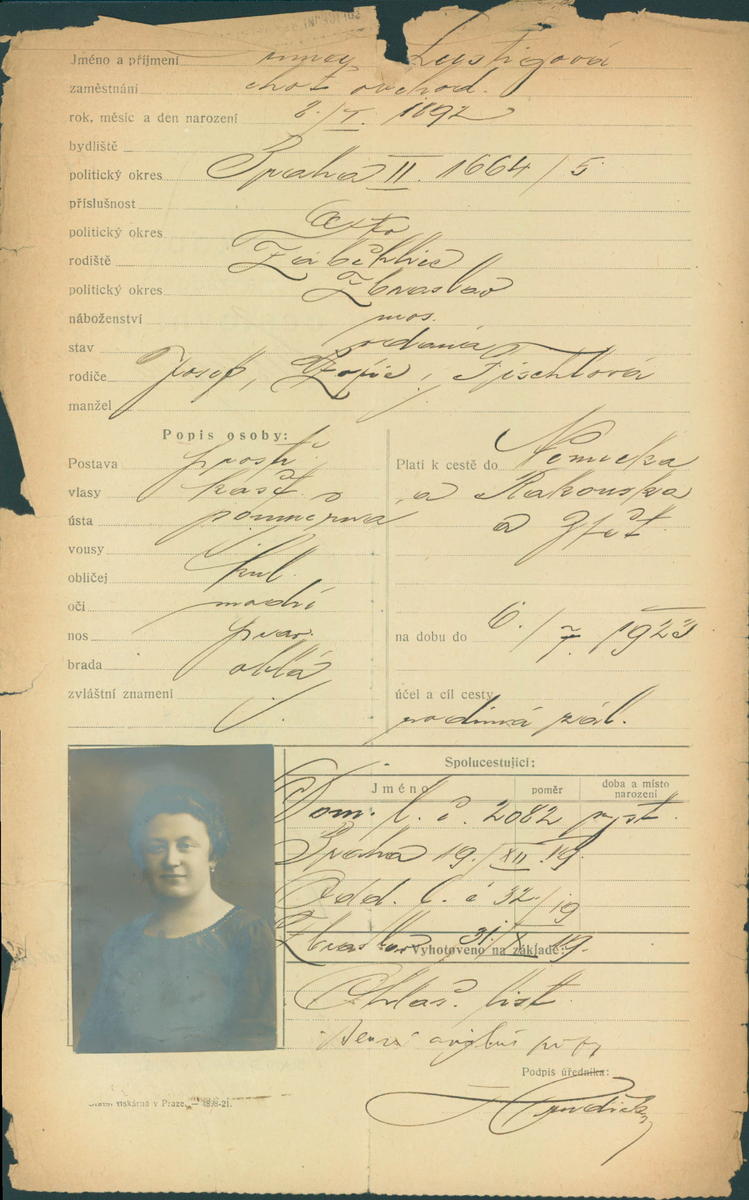 Jméno a příjmení Lustigová
zaměstnání choť obchod.
rok, měsíc a den narození 2/I. 1892
bydliště
politický okres Praha II. 1664/5
příslušnost
politický okres
rodiště Záběhlic
politický okres Zbraslav
náboženství mos.
stav vdaná
rodiče Josef, Žofie, Tischlová
manžel
Popis osoby:
Postava prostř.
vlasy kašt.
ústa poměrná
vousy
obličej kul.
oči modré
nos prav.
brada oblá
zvláštní znamení
Platí k cestě do Německa
a Rakouska
a zpět.
na dobu do 6./7. 1923
účel a cíl cesty
rodinná zál.
Spolucestující:
Jméno poměr doba a místo narození
Dom. l. č. 2082 vyst.
Praha 19./XII 19.
Odd. l. č 32/19
Zbraslav 31/X 19.
Vyhotoveno na základě:
Ohlaš. list.
Podpis úředníka:
Státní tiskárna v Praze. — 1898-21.